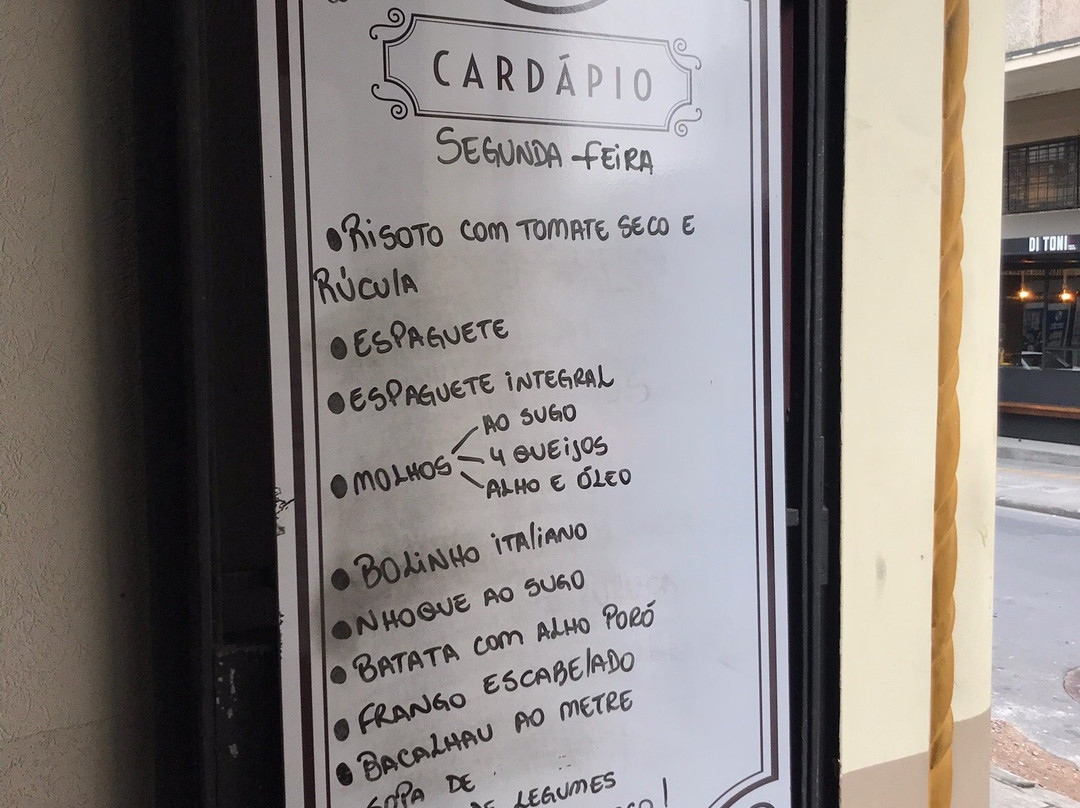 CARDÁPIO
SEGUNDA-FEIRA
• RISOTO COM TOMATE SECO E
RÚCULA
• ESPAGUETE
• ESPAGUETE INTEGRAL
AO SUGO
• MOLHOS 4 QUEIJOS
ALHO E ÓLEO
• BOLINHO ITALIANO
• NHOQUE AO SUGO
• BATATA COM ALHO PORÓ
• FRANGO ESCABELADO
• BACALHAU AO METRE
SOPA DE
DE LEGUMES
DI TONI